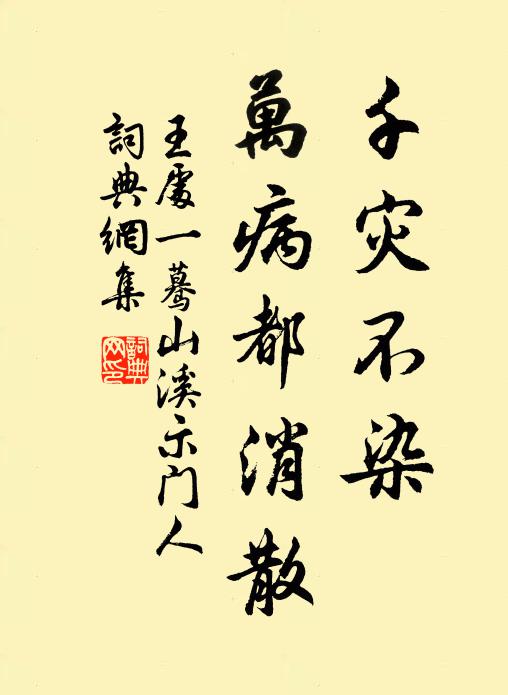 千灾不染
萬病都消散
王處一蓦山溪示门人
詞典網集
詞典網印